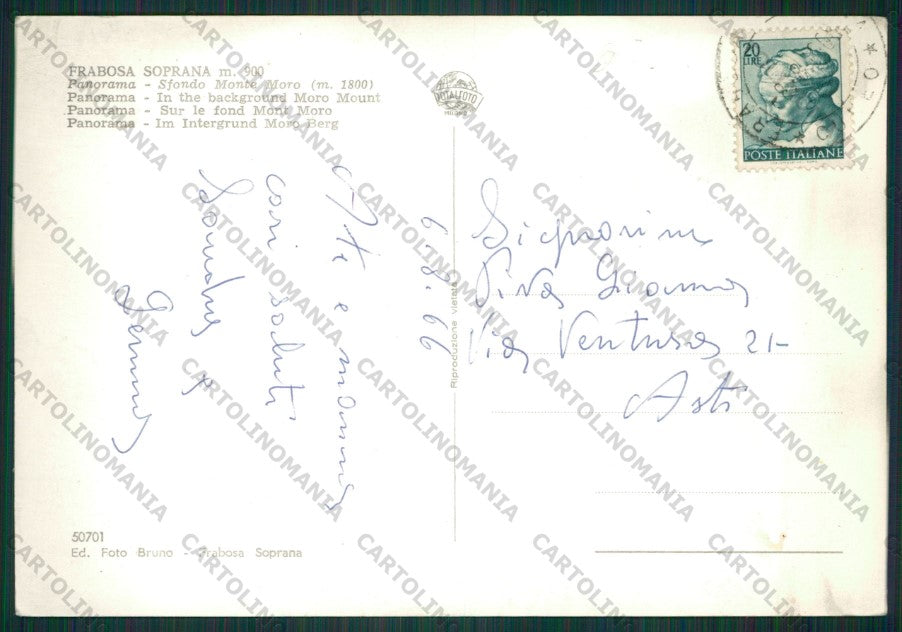 FRABOSA SOPRANA m. 900
Panorama - Sfondo Monte Moro (m. 1800)
Panorama - In the background Moro Mount
Panorama - Sur le fond Mont Moro
Panorama - Im Intergrund Moro Berg
ROTALFOTO
MILANO
20
LIRE
POSTE ITALIANE
6-8-66
A te e mamma
cari saluti
Sandra e
Gemma
Signorina
Piva Gianna
Via Ventura 21-
Asti
Riproduzione vietata
50701
Ed. Foto Bruno - Frabosa Soprana
CARTOLINOMANIA